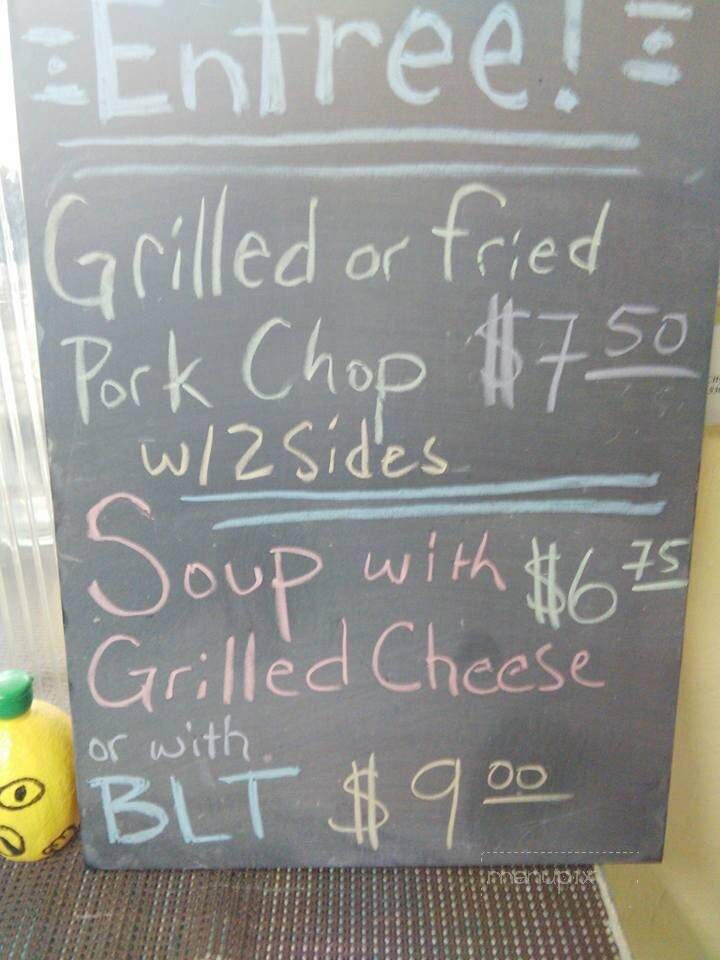 Entree!
Grilled or fried
Pork Chop $7 50
w/2 Sides
Soup with $6 75
Grilled Cheese
or with
BLT $9 00
menupix